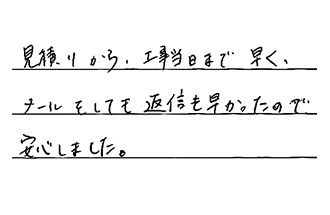 見積りから、工事当日まで早く、
メールをしても返信も早かったので
安心しました。